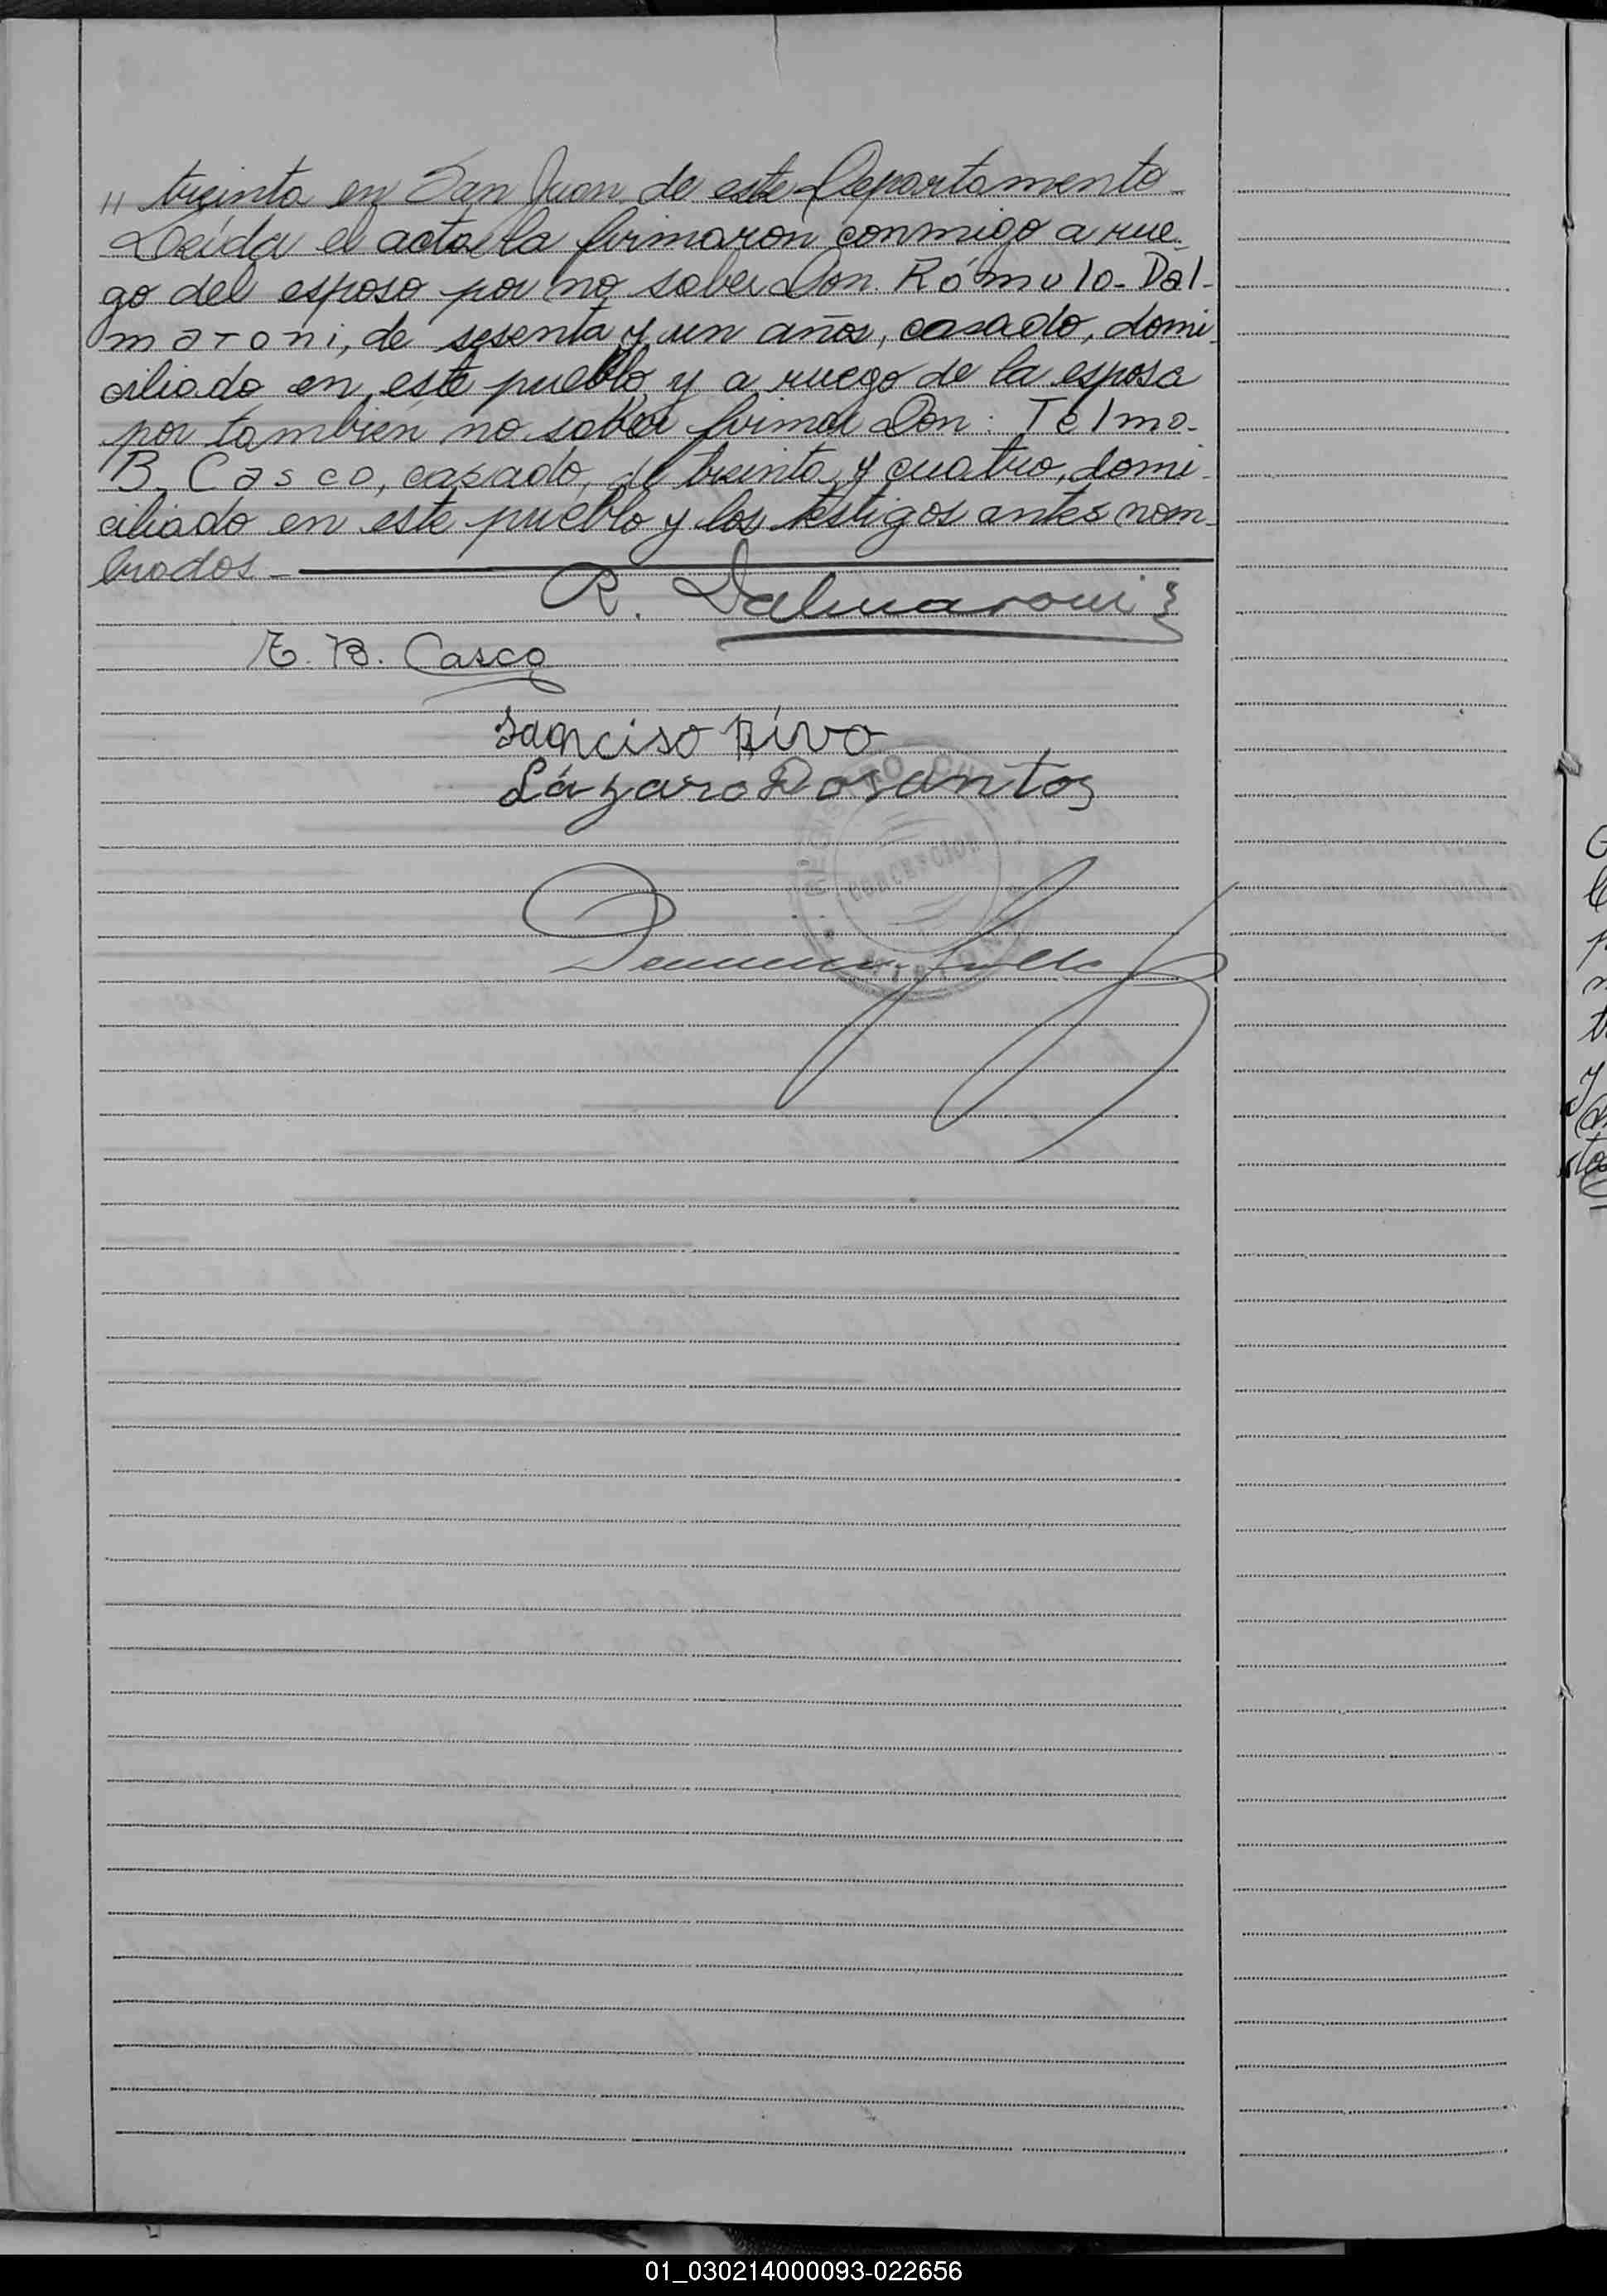 " treinta en San Juan de este Departamento_
Leída el acta la firmaron conmigo a rue-
go del esposo por no saber Don. Rómulo_Dal-
maroni, de sesenta y un años, casado, domi-
ciliado en este pueblo y a ruego de la esposa
por también no saber firmar Don: Telmo-
B. Casco, casado, de treinta y cuatro, domi-
ciliado en este pueblo y los testigos antes nom-
brados_
R. Dalmaroni
T. B. Casco
Lázaro Dosantos
REGISTRO CIVIL
CONCEPCION
MISIONES
01_030214000093-022656